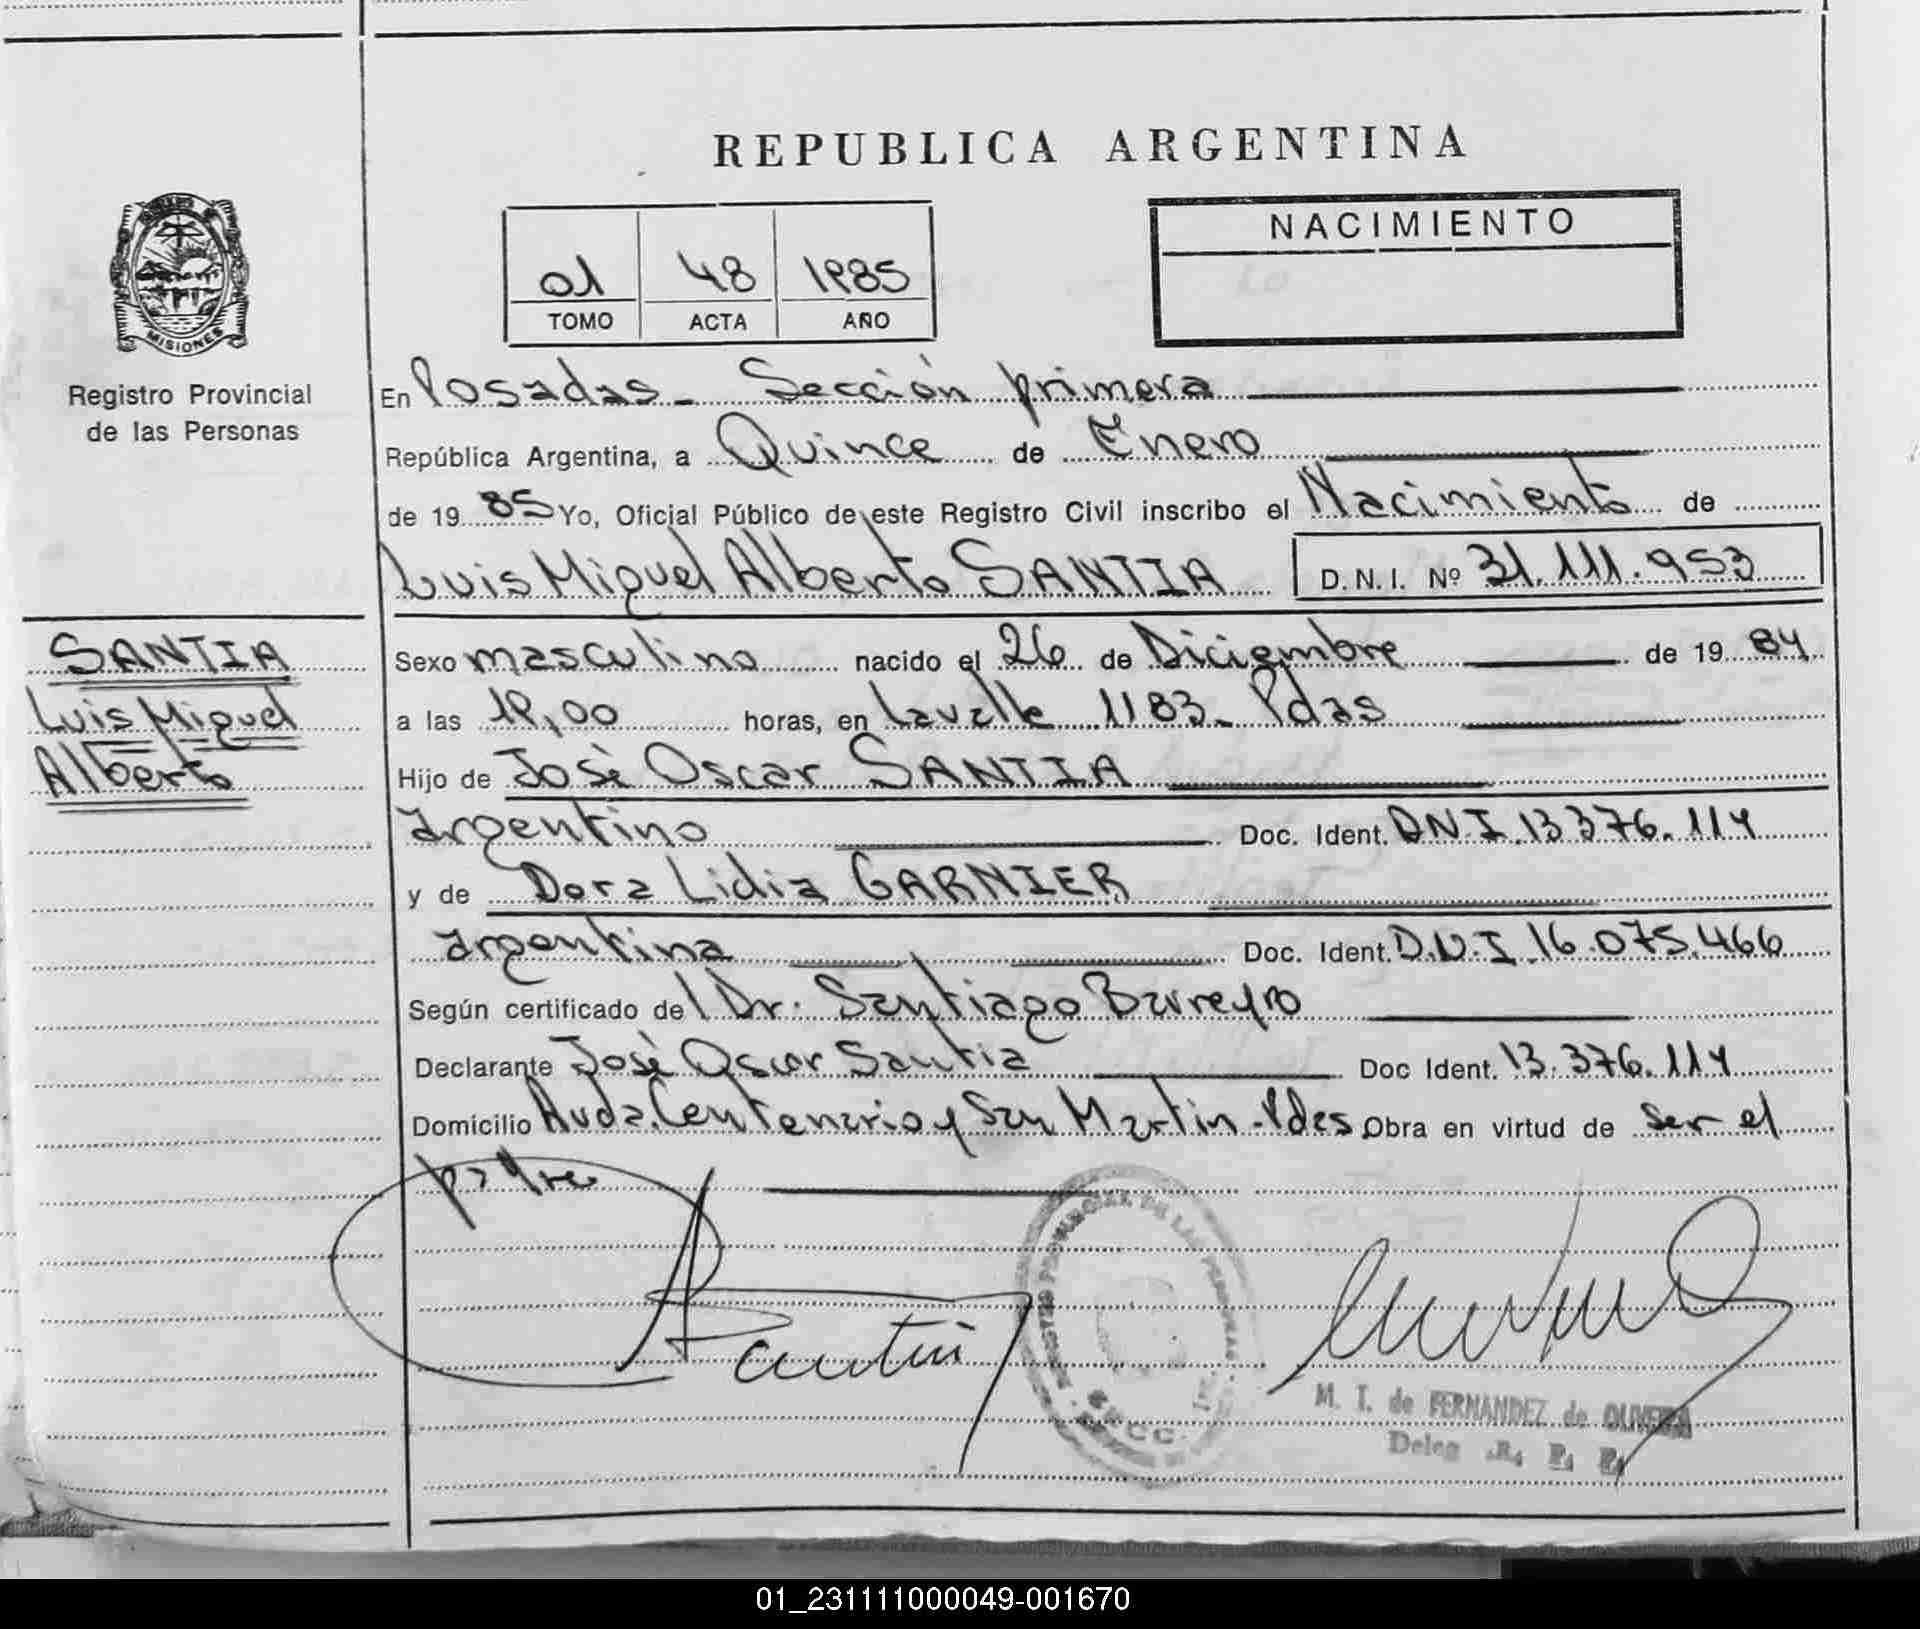 REPUBLICA ARGENTINA
MISIONES
Registro Provincial
de las Personas
01 48 1985
TOMO ACTA AÑO
NACIMIENTO
En Posadas - Sección primera
República Argentina, a Quince de Enero
de 19 85 Yo, Oficial Público de este Registro Civil inscribo el Nacimiento de
Luis Miguel Alberto SANTIA D.N.I. Nº 31.111.953
SANTIA
Luis Miguel
Alberto
Sexo masculino nacido el 26 de Diciembre de 19 84
a las 19,00 horas, en Lavalle 1183 - Pdas
Hijo de Josè Oscar SANTIA
argentino Doc. Ident. DNI 13 376.114
y de Dora Lidia GARNIER
argentina Doc. Ident. D.N.I. 16.075.466
Según certificado del Dr. Santiago Barreyro
Declarante Josè Oscar Santia Doc Ident. 13.376.114
Domicilio Avda. Centenario y San Martin - Pdas Obra en virtud de ser el
padre
REGISTRO PROVINCIAL DE LAS PERSONAS
M. T. de FERNANDEZ de OLIVEIRA
Deleg R. P. P.
01_231111000049-001670